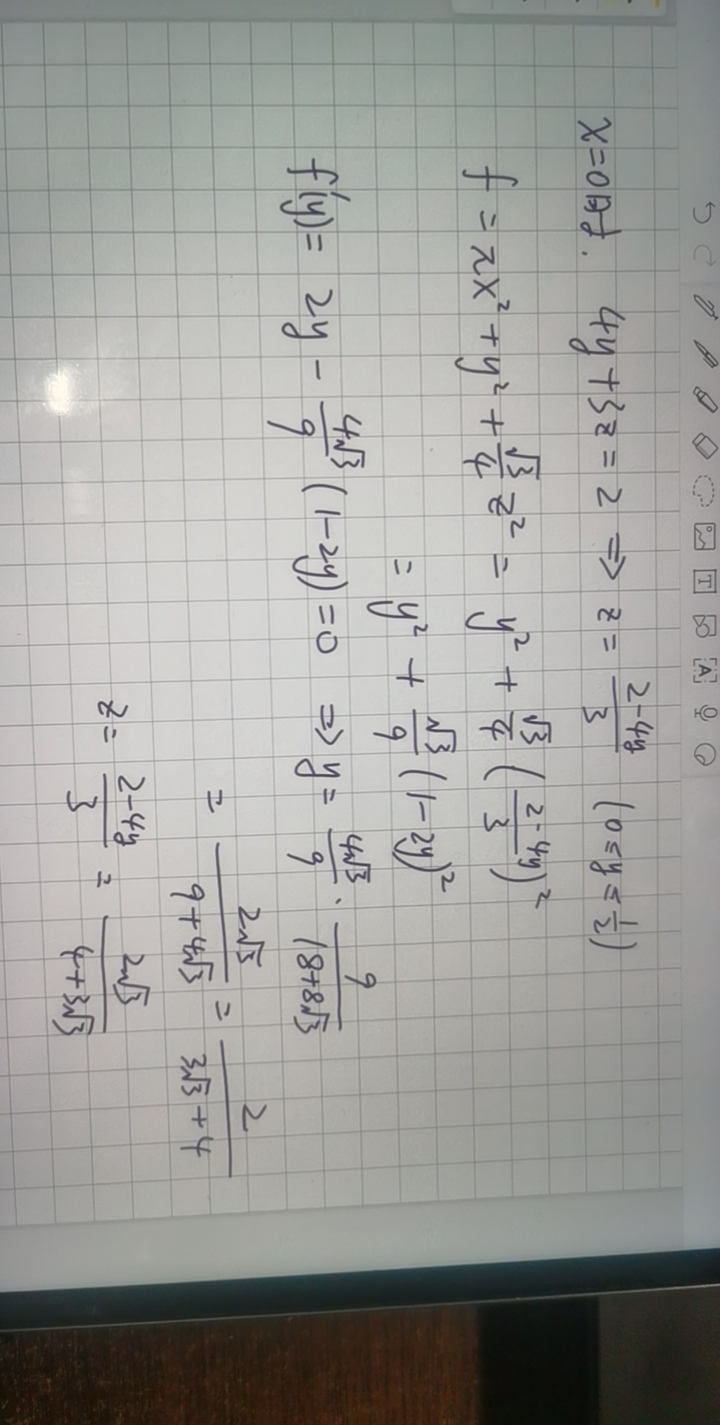 x=0时. 4y+3z=2 ⇒ z= (2-4y)/3 (0≤y≤1/2)
f = πx² + y² + √3/4 z² = y² + √3/4 ((2-4y)/3)²
= y² + √3/9 (1-2y)²
f'(y)= 2y - 4√3/9 (1-2y)=0 ⇒ y= 4√3/9 · 9/(18+8√3)
= 2√3/(9+4√3) = 2/(3√3+4)
z= (2-4y)/3 = 2√3/(4+3√3)